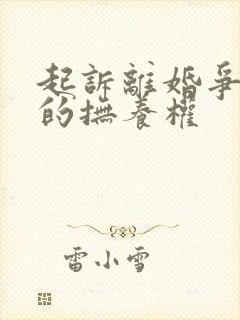 起訴離婚爭
的撫養權
雷小雪